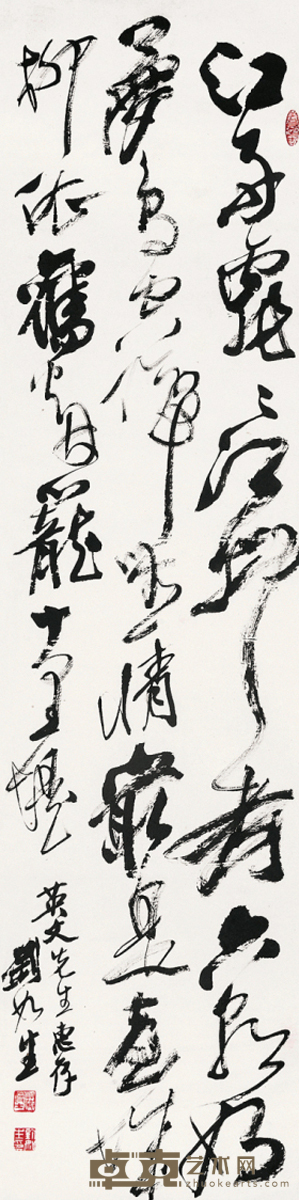 江雨霏霏江草齐六朝如
梦鸟空啼无情最是台城
柳依旧烟笼十里堤
英文先生惠存
刘如生
卓克艺术网
www.zhuokearts.com